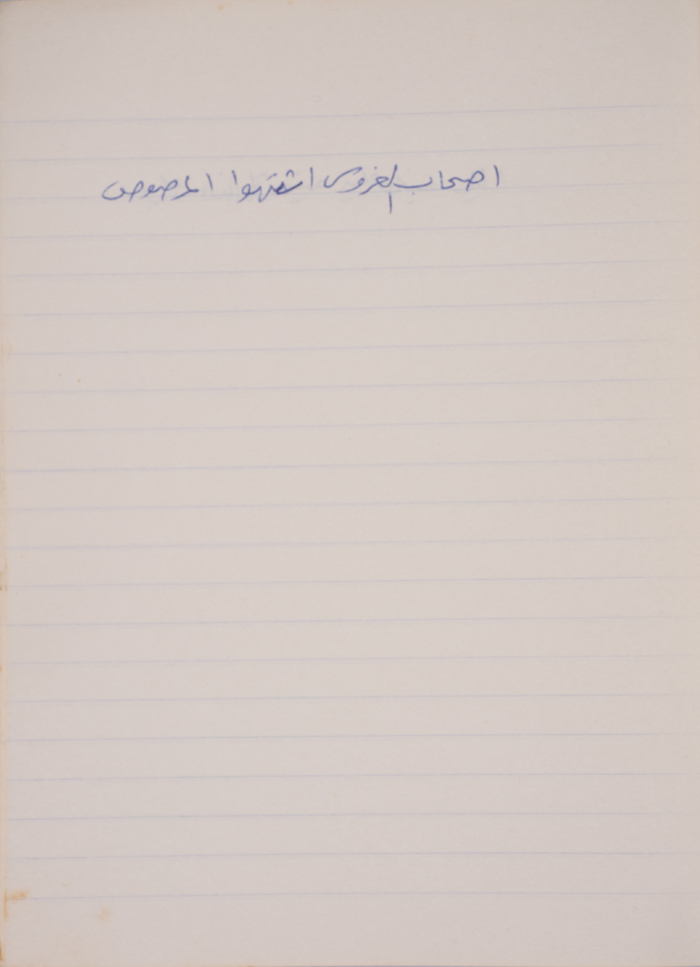 اصحاب الغروس اشتهوا المصوص